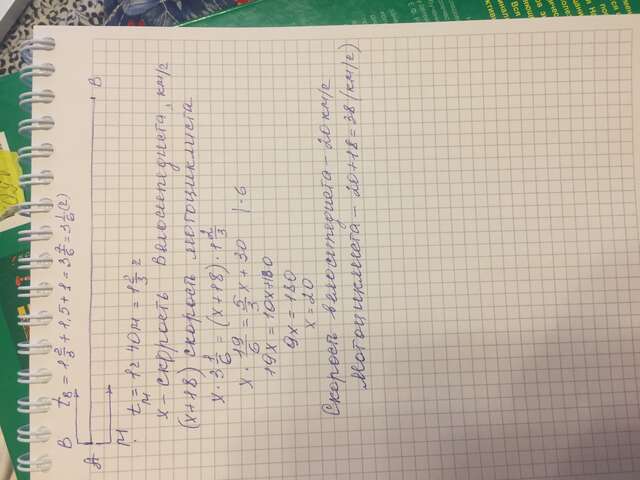 В t_В = 1 2/3 + 1,5 + 1 = 3 7/6 = 3 1/6 (ч)
А В
М
t_М = 1ч 40м = 1 2/3 ч
х – скорость велосипедиста, км/ч
(х+18) скорость мотоциклиста
х · 3 1/6 = (х+18) · 1 2/3
х · 19/6 = 5/3 х + 30 | · 6
19х = 10х + 180
9х = 180
х = 20
Скорость велосипедиста – 20 км/ч
Мотоциклиста – 20+18 = 38 (км/ч)